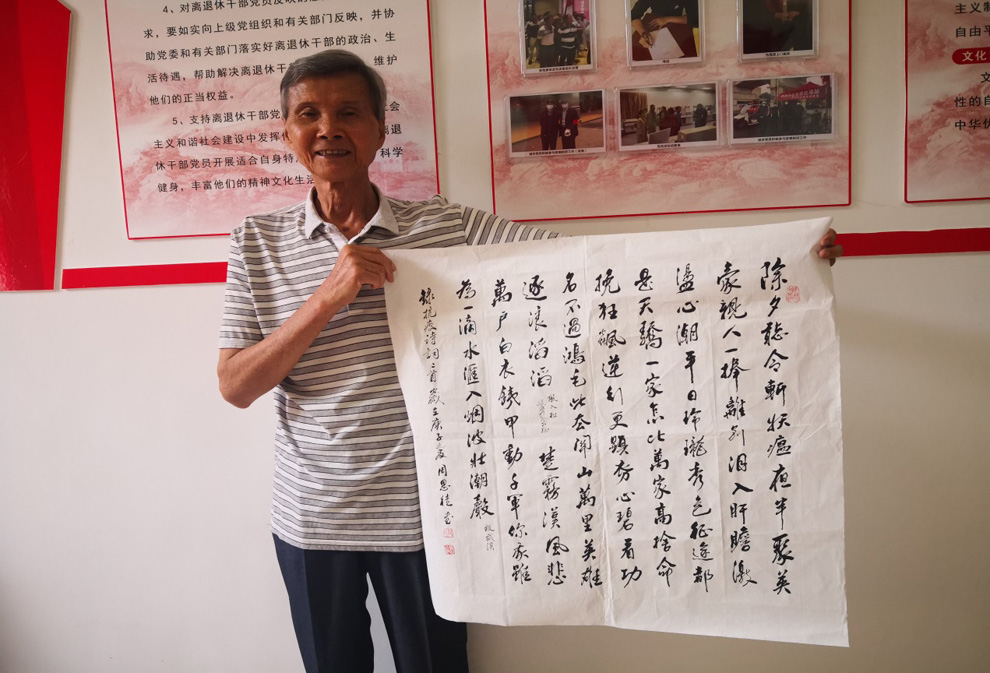 4、对离退休干部党员反映的
求，要如实向上级党组织和有关部门反映，并协
助党委和有关部门落实好离退休干部的政治、生
活待遇，帮助解决离退休干 维护
他们的正当权益。
5、支持离退休干部党 社会
主义和谐社会建设中发挥 离退
休干部党员开展适合自身特 科学
健身，丰富他们的精神文化生活
主义制
自由平
文化
文
性的自
中华优
除夕聽令斬妖瘟夜半聚英
豪親人一捧離別泪入肝膽激
盪心潮平日玲瓏秀色征途都
是天驕一家怎比萬家高捨命
挽狂飆逆行更顯 心碧看功
名不過鴻毛此去關山萬里英雄
逐浪滔滔 楚霧漢風悲
萬戶白衣鐵甲動千軍你我雖
為一滴水匯入烟波壯潮聲
錄抗疫詩詞二首歲在庚子夏周恩 書